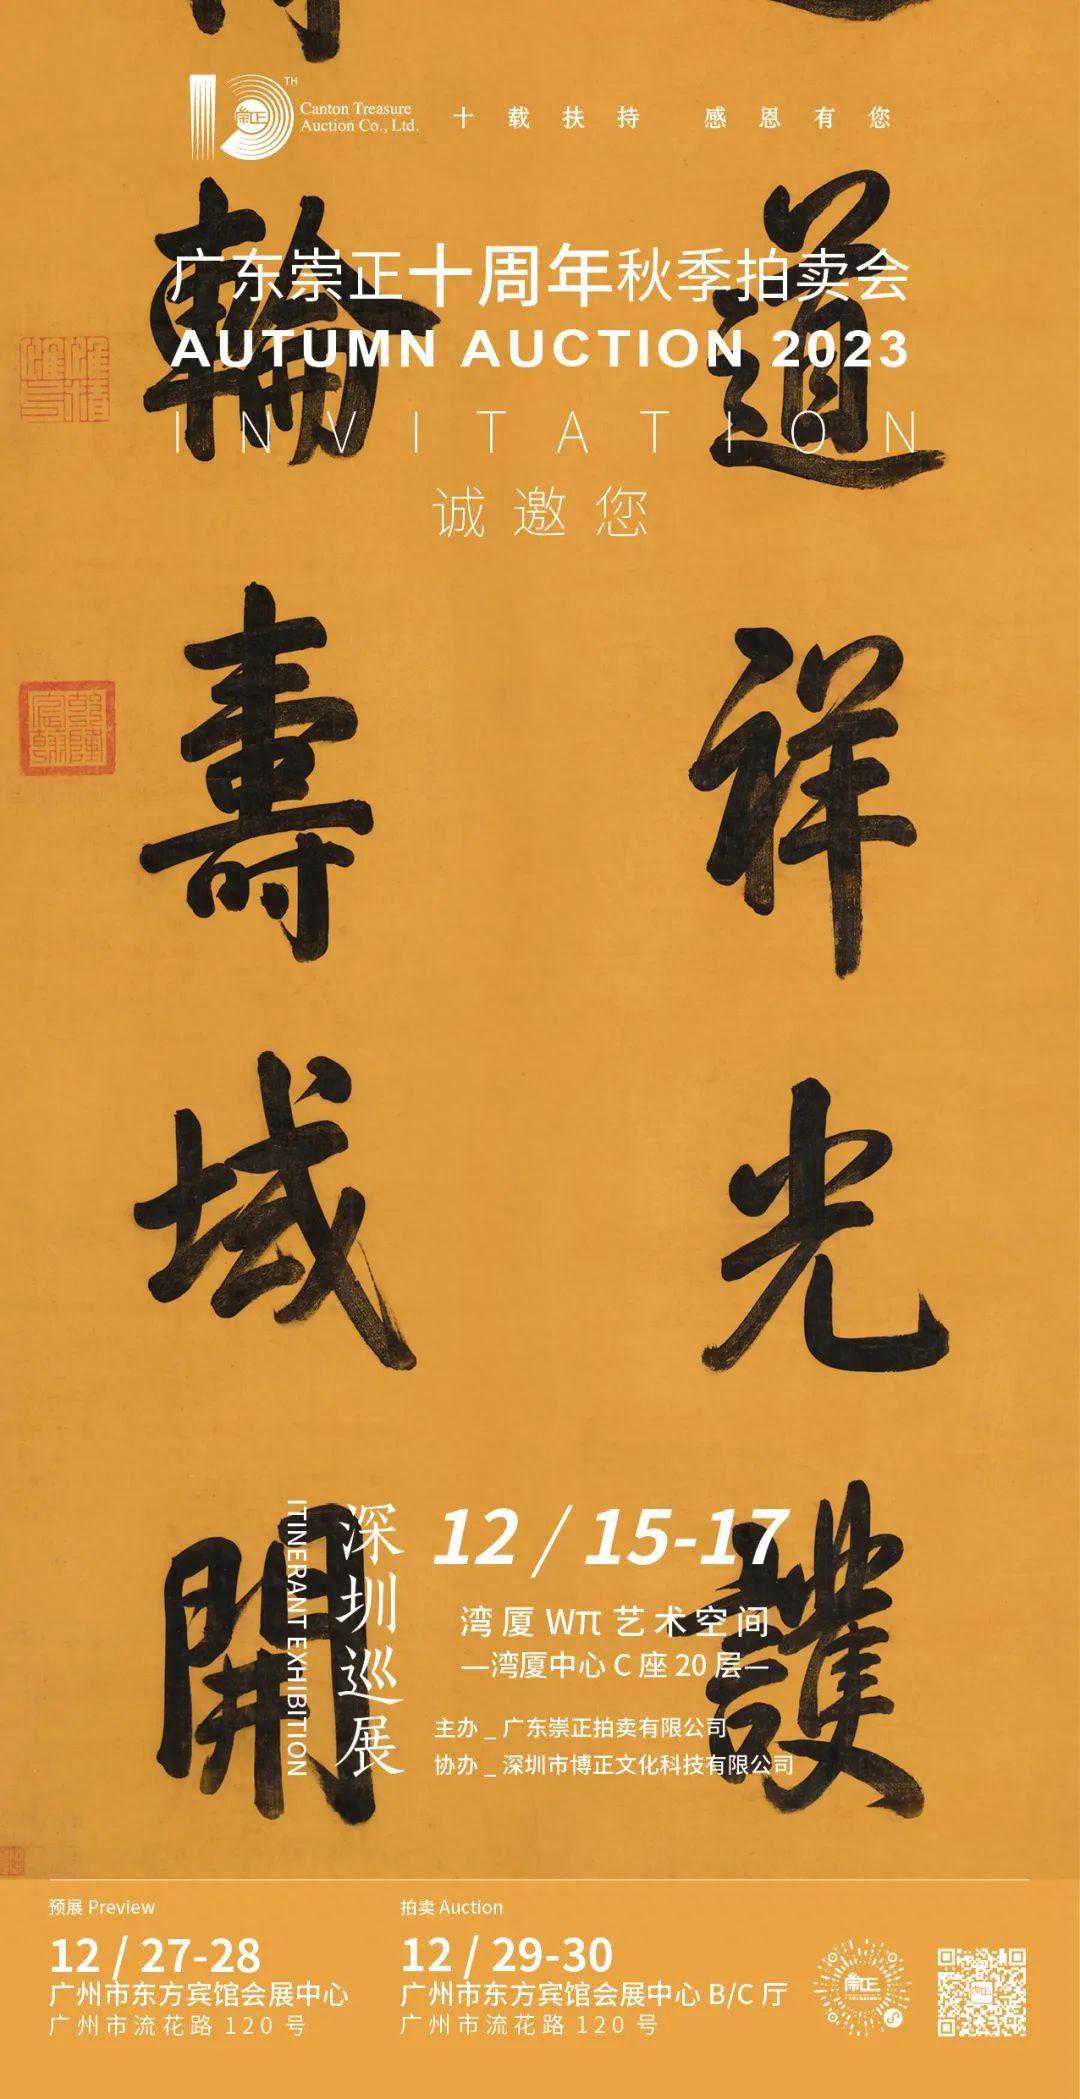 TH
Canton Treasure
Auction Co., Ltd.
十载扶持 感恩有您
广东崇正十周年秋季拍卖会
AUTUMN AUCTION 2023
INVITATION
诚邀您
道
祥
光
護
輪
壽
域
開
深圳巡展
ITINERANT EXHIBITION
12 / 15-17
湾厦 Wπ 艺术空间
—湾厦中心 C 座 20 层—
主办 _ 广东崇正拍卖有限公司
协办 _ 深圳市博正文化科技有限公司
预展 Preview
12 / 27-28
广州市东方宾馆会展中心
广州市流花路 120 号
拍卖 Auction
12 / 29-30
广州市东方宾馆会展中心 B/C 厅
广州市流花路 120 号